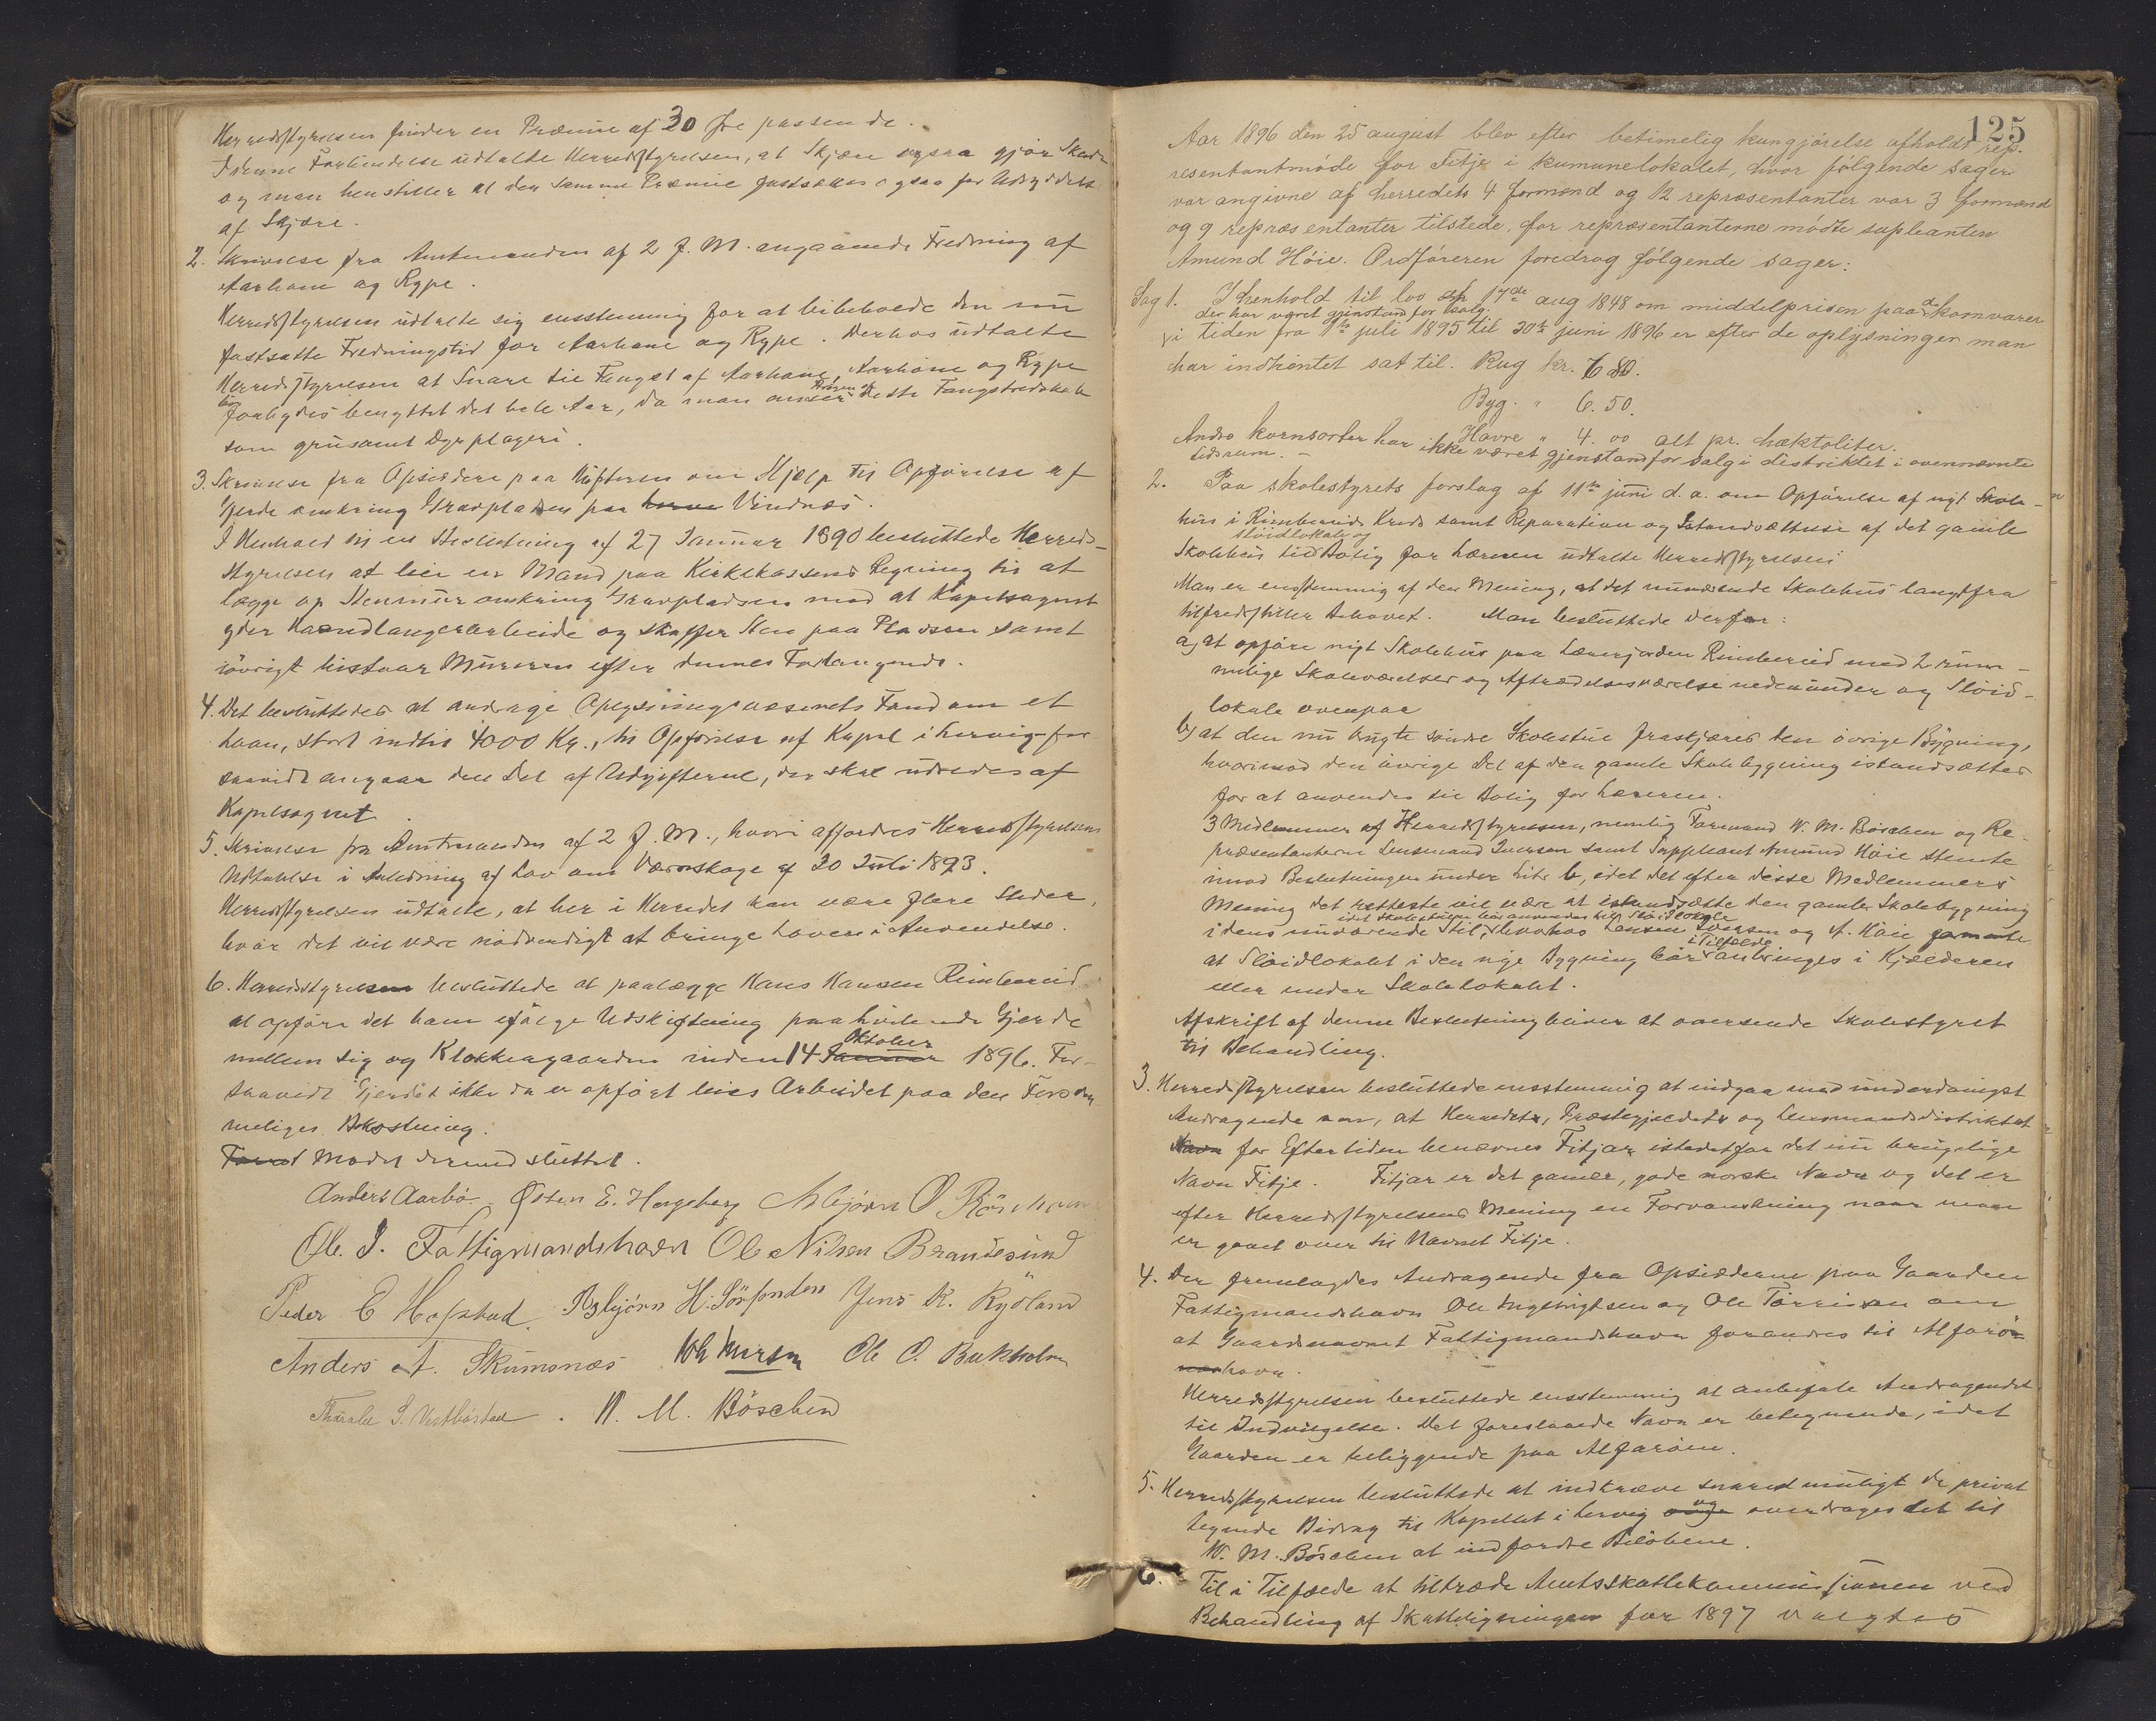 Herredsstyrelsen finder en Præmie af 30 Øre passende.
I denne Forbindelse udtalte Herredsstyrelsen, at Skjære ogsaa gjør Skade
og man henstiller at den samme Præmie fastsættes ogsaa for Udryddelse
af Skjære.
2. Skrivelse fra Amtmanden af 2 f. M. angaaende Fredning af
Aarhane og Rype.
Herredsstyrelsen udtalte sig enstemmig for at bibeholde den nu
fastsatte Fredningstid for Aarhane og Rype. Derhos udtalte
Herredsstyrelsen at Snare til Fangst af Aarhane, Aarhøne og Rype
bør forbydes benyttet det hele Aar, da man anser Brugen af dette Fangstredskab
som grusomt Dyrplageri.
3. Skrivelse fra Opsiddere paa om Hjælp til Opførelse af
Gjerde omkring Gravpladsen paa Vindnæs.
I Henhold til en Beslutning af 27 Januar 1890 besluttede Herreds-
styrelsen at leie en Mand paa Kirkekassens Regning til at
lægge op Stenmur omkring Gravpladsen mod at Kapelsognet
yder Haandlangerarbeide og skaffer Sten paa Pladsen samt
iøvrigt bistaar Mureren efter dennes Forlangende.
4. Det besluttedes at andrage Oplysningsvæsenets Fond om et
Laan, stort indtil 4000 Kr., til Opførelse af Kapel i Lervig for
saavidt angaar den Del af Udgifterne, der skal udredes af
Kapelsognet.
5. Skrivelse fra Amtmanden af 2 f. M., hvori affordres Herredsstyrelsens
Udtalelse i Anledning af Lov om Værnskoge af 20 Juli 1893.
Herredsstyrelsen udtalte, at her i Herredet kan være flere Steder,
hvor det vil være nødvendigt at bringe Loven i Anvendelse.
6. Herredsstyrelsen besluttede at paalægge Hans Hansen Rimbereid
at opføre det ham ifølge Udskiftning paahvilende Gjerde
mellem sig og Klokkergaarden inden 14 Januar Oktober 1896. For-
saavidt Gjerdet ikke da er opført leies Arbeidet paa den Forsøm-
meliges Bekostning.
Mødet dermed sluttet.
Anders Aarbø. Østen E. Hageberg Asbjørn O
Ole J. Fattigmandshavn Ole Nilsen Brandesund
Peder E Hofstad. Asbjørn H. Sørfonden Jens K. Rydland
Anders A. Skumsnæs Ole O. Bukholm
. W. M. Böschen
125
Aar 1896 den 25 august blev efter betimelig kungjørelse afholdt rep-
resentantmøde for Fitje i kumunelokalet, hvor følgende sager
var angivne af herredets 4 formænd og 12 representanter var 3 formænd
og 9 repræsentanter tilstede, for repræsentanterne mødte supleanten
Amund Høie. Ordføreren foredrog følgende sager:
Sag 1. I henhold til lov af 17de aug 1848 om middelprisen paa de kornvarer
der har været gjenstand for salg
i tiden fra 1ste juli 1895 til 30te juni 1896 er efter de oplysninger man
har indhentet sat til. Rug kr.
Byg. " 6.50.
Havre " 4.00 alt pr. hæktoliter.
Andre kornsorter har ikke været gjenstand for salg i distriktet i ovennævnte
tidsrum. –
2. Paa skolestyrets forslag af 11te juni d. a. om Opførelse af nyt Skole-
hus i Rimbereid Kreds samt Reparation og Istandsættelse af det gamle
sløidlokale og
Skolehus til Bolig for Læreren udtalte Herredsstyrelsen:
Man er enstemmig af den Mening, at det nuværende Skolehus langt fra
tilfredsstiller Behovet. Man besluttede derfor:
a) at opføre nyt Skolehus paa Lærerjorden Rimbereid med 2 rum-
melige Skoleværelser og Aftrædelsesværelse nedenunder og Sløid-
lokale ovenpaa
b) at den nu brugte søndre Skolestue fraskjæres den øvrige Bygning,
hvorimod den øvrige Del af den gamle Skolebygning istandsættes
for at anvendes til Bolig for Læreren.
3 Medlemmer af Herredsstyrelsen, nemlig Formand W. M. Böschen og Re-
præsentanterne Lensmand Iversen samt Suppleant Amund Høie stemte
imod Beslutningen under Litr b, idet det efter disse Medlemmers
Mening det retteste vil være at istandsætte den gamle Skolebygning
idet skolestuen bør anvendes til Sløidlokale
i dens nuværende Stil, hvorhos Iversen og A. Høie
at Sløidlokalet i den nye Bygning bør i Tilfælde anbringes i Kjælderen
eller under Skolelokalet.
Afskrift af denne Beslutning bliver at oversende Skolestyret
til Behandling.
3. Herredsstyrelsen besluttede enstemmig at indgaa med underdanigst
Andragende om, at Herredets, Præstegjeldets og Lensmandsdistriktet
Navn for Eftertiden benævnes Fitjar istedetfor det nu brugelige
Navn Fitje. Fitjar er det gamle, gode norske Navn og det er
efter Herredsstyrelsens Mening en Forvanskning naar man
er gaaet over til Navnet Fitje.
4. Der fremlagdes Andragende fra Opsidderne paa Gaarden
Fattigmandshavn Ole Ingebrigtsen og Ole Tørrisen om
at Gaardsnavnet Fattigmandshavn forandres til Alforø-
havn.
Herredsstyrelsen besluttede enstemmig at anbefale Andragendet
til Indvilgelse. Det foreslaaede Navn er betegnende, idet
Gaarden er beliggende paa Alforøen.
5. Herredsstyrelsen besluttede at indkræve snarest muligt de privat
tegnede Bidrag til Kapellet i Lervig og overdrages det til
W. M. Böschen at indfordre Beløbene.
6. Til i Tilfælde at tiltræde Amtsskattekommissionen ved
Behandling af Skatteligningen for 1897 valgtes